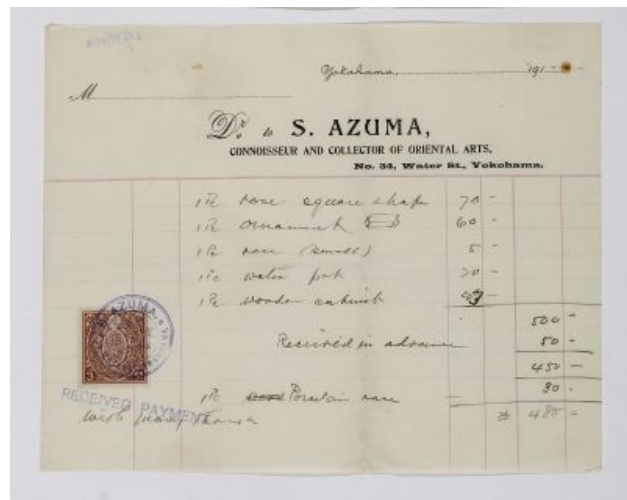 Yokohama, 191-
M
Dr. to S. AZUMA,
CONNOISSEUR AND COLLECTOR OF ORIENTAL ARTS,
No. 34, Water St., Yokohama.
1 Pc vase square shape 70 -
1 Pc ornament 60 -
1 Pc vase (small) 5 -
1 Pc water pot 20 -
1 Pc wooden cabinet
500 -
Received in advance 50 -
450 -
1 Pc Porcelain vase 30 .
480 -
S. AZUMA,
RECEIVED PAYMENT
with many thanks